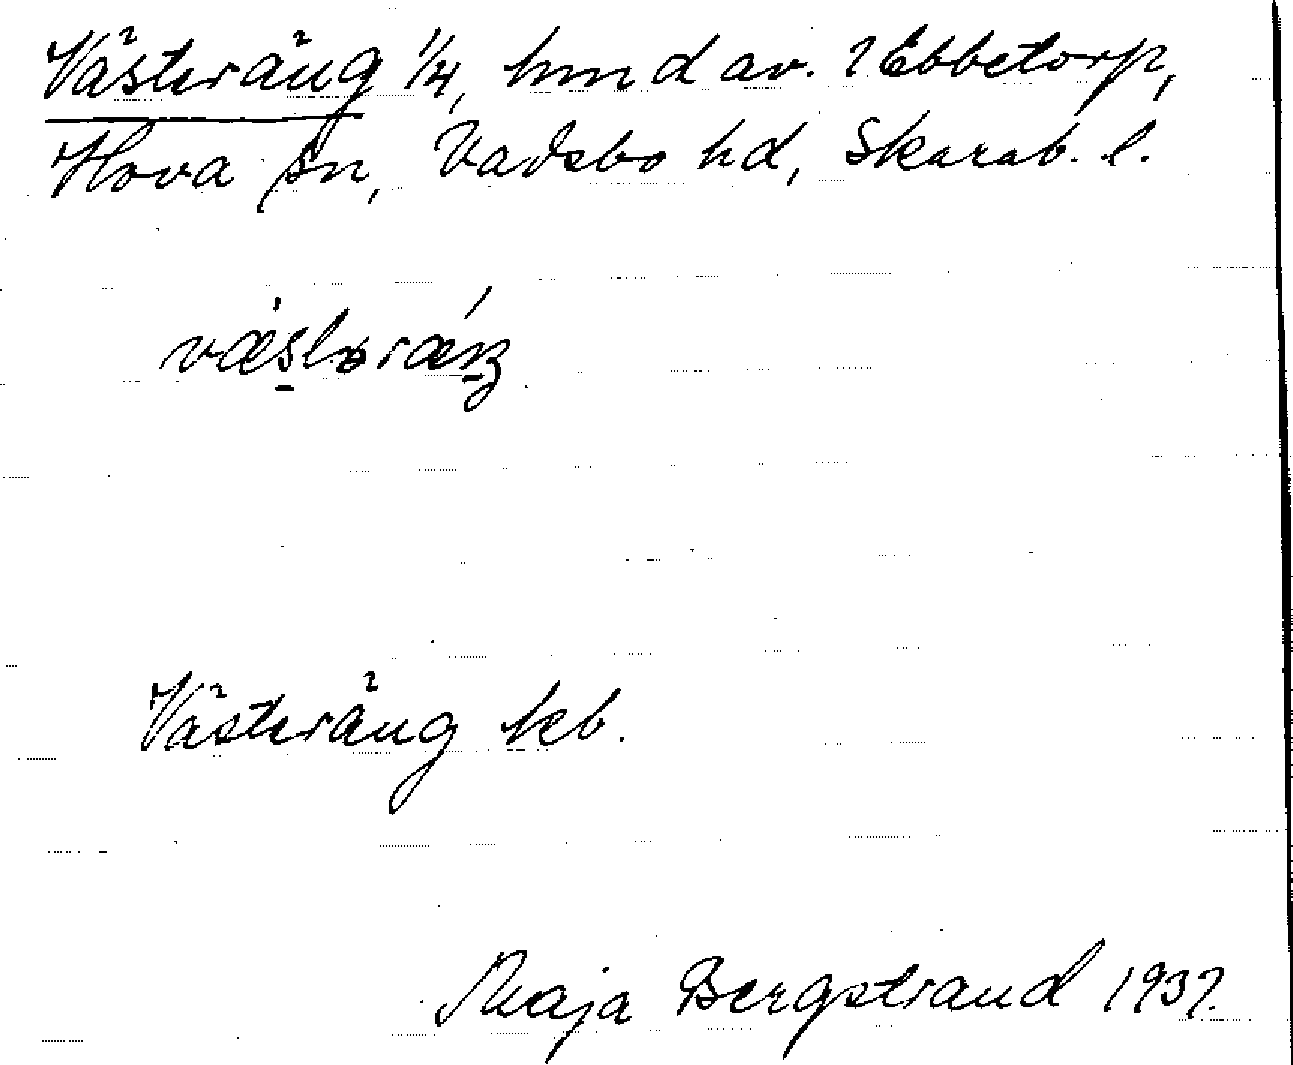 Västeräng 1/4, hmd av. 2 Ebbetorp,
Hova sn, Vadsbo hd, Skarab. l.
Västeräng kb.
Maja Bergstrand 1937.